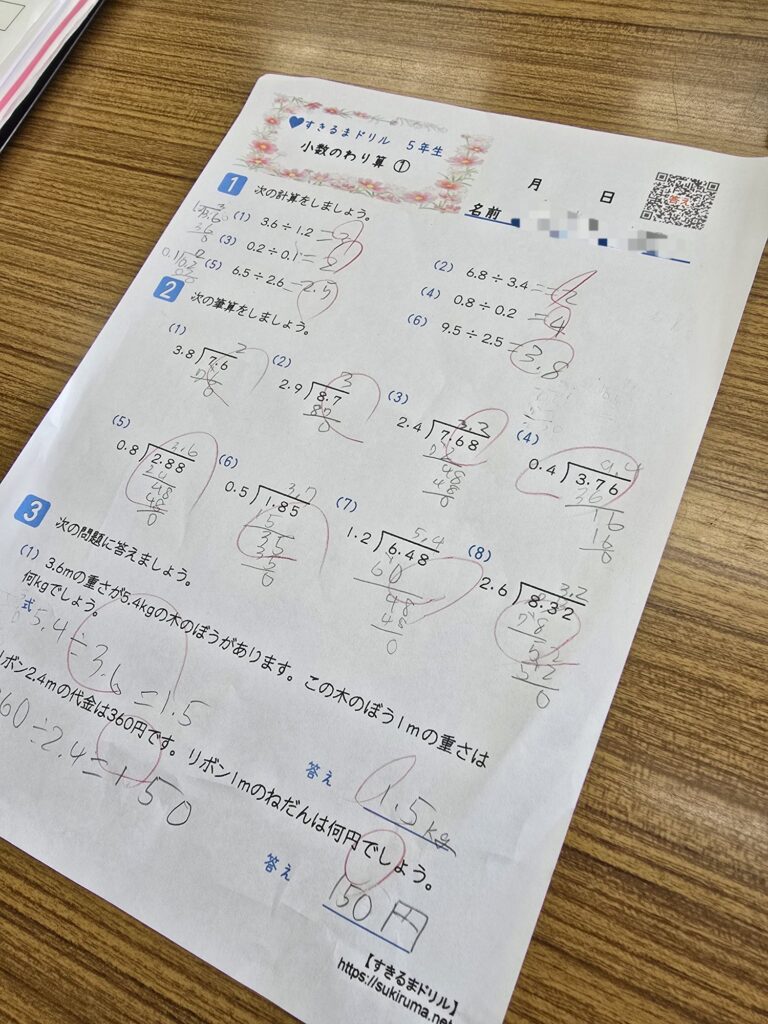 すきるまドリル 5年生
小数のわり算 ①
月 日
名前
答え
1 次の計算をしましょう。
(1) 3.6÷1.2 =3
(2) 6.8÷3.4 =2
(3) 0.2÷0.1 =2
(4) 0.8÷0.2 =4
(5) 6.5÷2.6 =2.5
(6) 9.5÷2.5 =3.8
2 次の筆算をしましょう。
(1)
2
3.8 7.6
76
0
(2)
3
2.9 8.7
87
0
(3)
3.2
2.4 7.68
72
48
48
0
(4)
9.4
0.4 3.76
36
16
16
0
(5)
3.6
0.8 2.88
24
48
48
0
(6)
3.7
0.5 1.85
15
35
35
0
(7)
5.4
1.2 6.48
60
48
48
0
(8)
3.2
2.6 8.32
78
52
52
0
3 次の問題に答えましょう。
(1) 3.6mの重さが5.4kgの木のぼうがあります。この木のぼう1mの重さは
何kgでしょう。
式 5.4÷3.6=1.5
答え 1.5kg
リボン2.4mの代金は360円です。リボン1mのねだんは何円でしょう。
60÷2.4=150
答え 150円
【すきるまドリル】
https://sukiruma.net